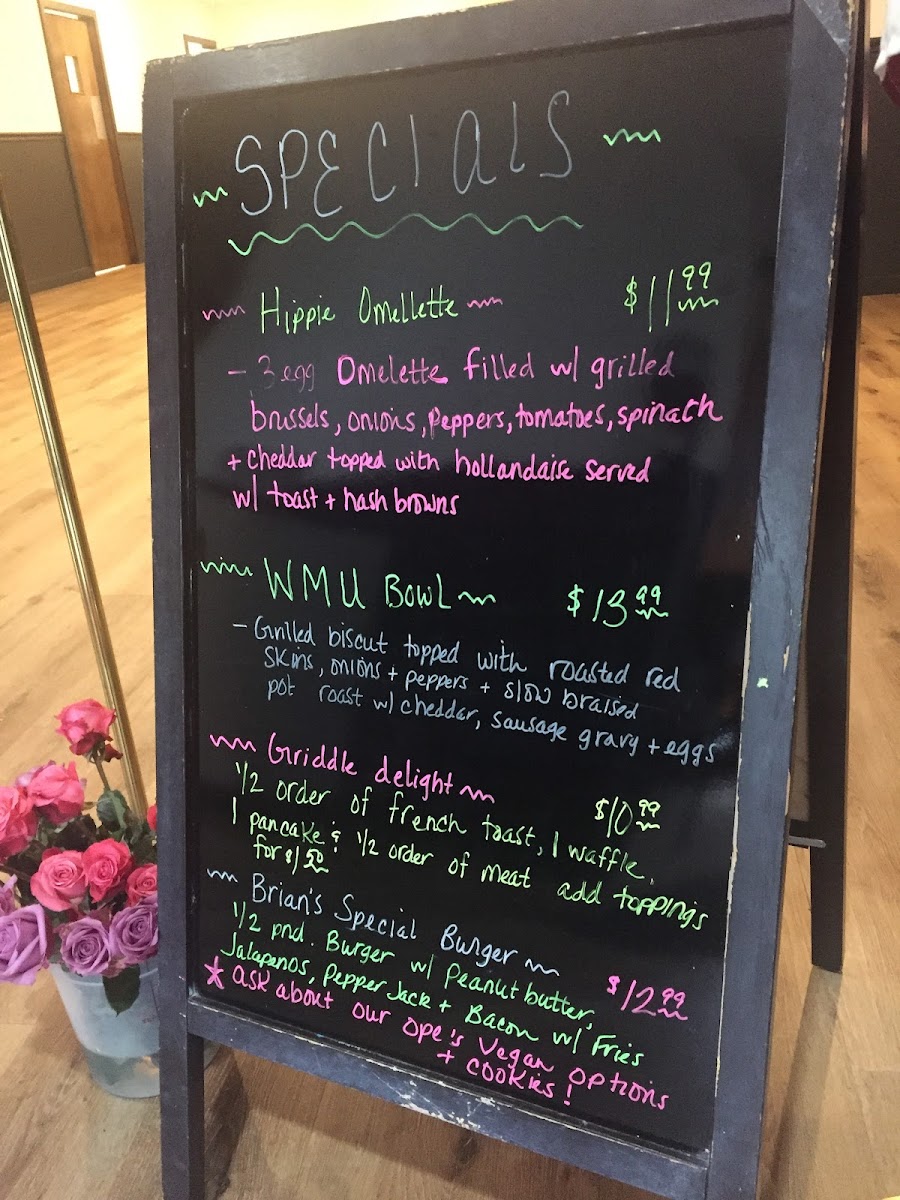 SPECIALS
Hippie Omellette $11.99
- 3 egg Omelette filled w/ grilled
brussels, onions, peppers, tomatoes, spinach
+ cheddar topped with hollandaise served
w/ toast + hash browns
WMU Bowl $13.99
- Grilled biscut topped with roasted red
skins, onions + peppers + slow braised
pot roast w/ cheddar, sausage gravy + eggs
Griddle delight $10.99
1/2 order of french toast, 1 waffle,
1 pancake & 1/2 order of meat add toppings
for $1.50
Brian's Special Burger $12.99
1/2 pnd. Burger w/ Peanut butter,
Jalapenos, Pepper Jack + Bacon w/ Fries
* ask about our Ope's Vegan options
+ cookies!